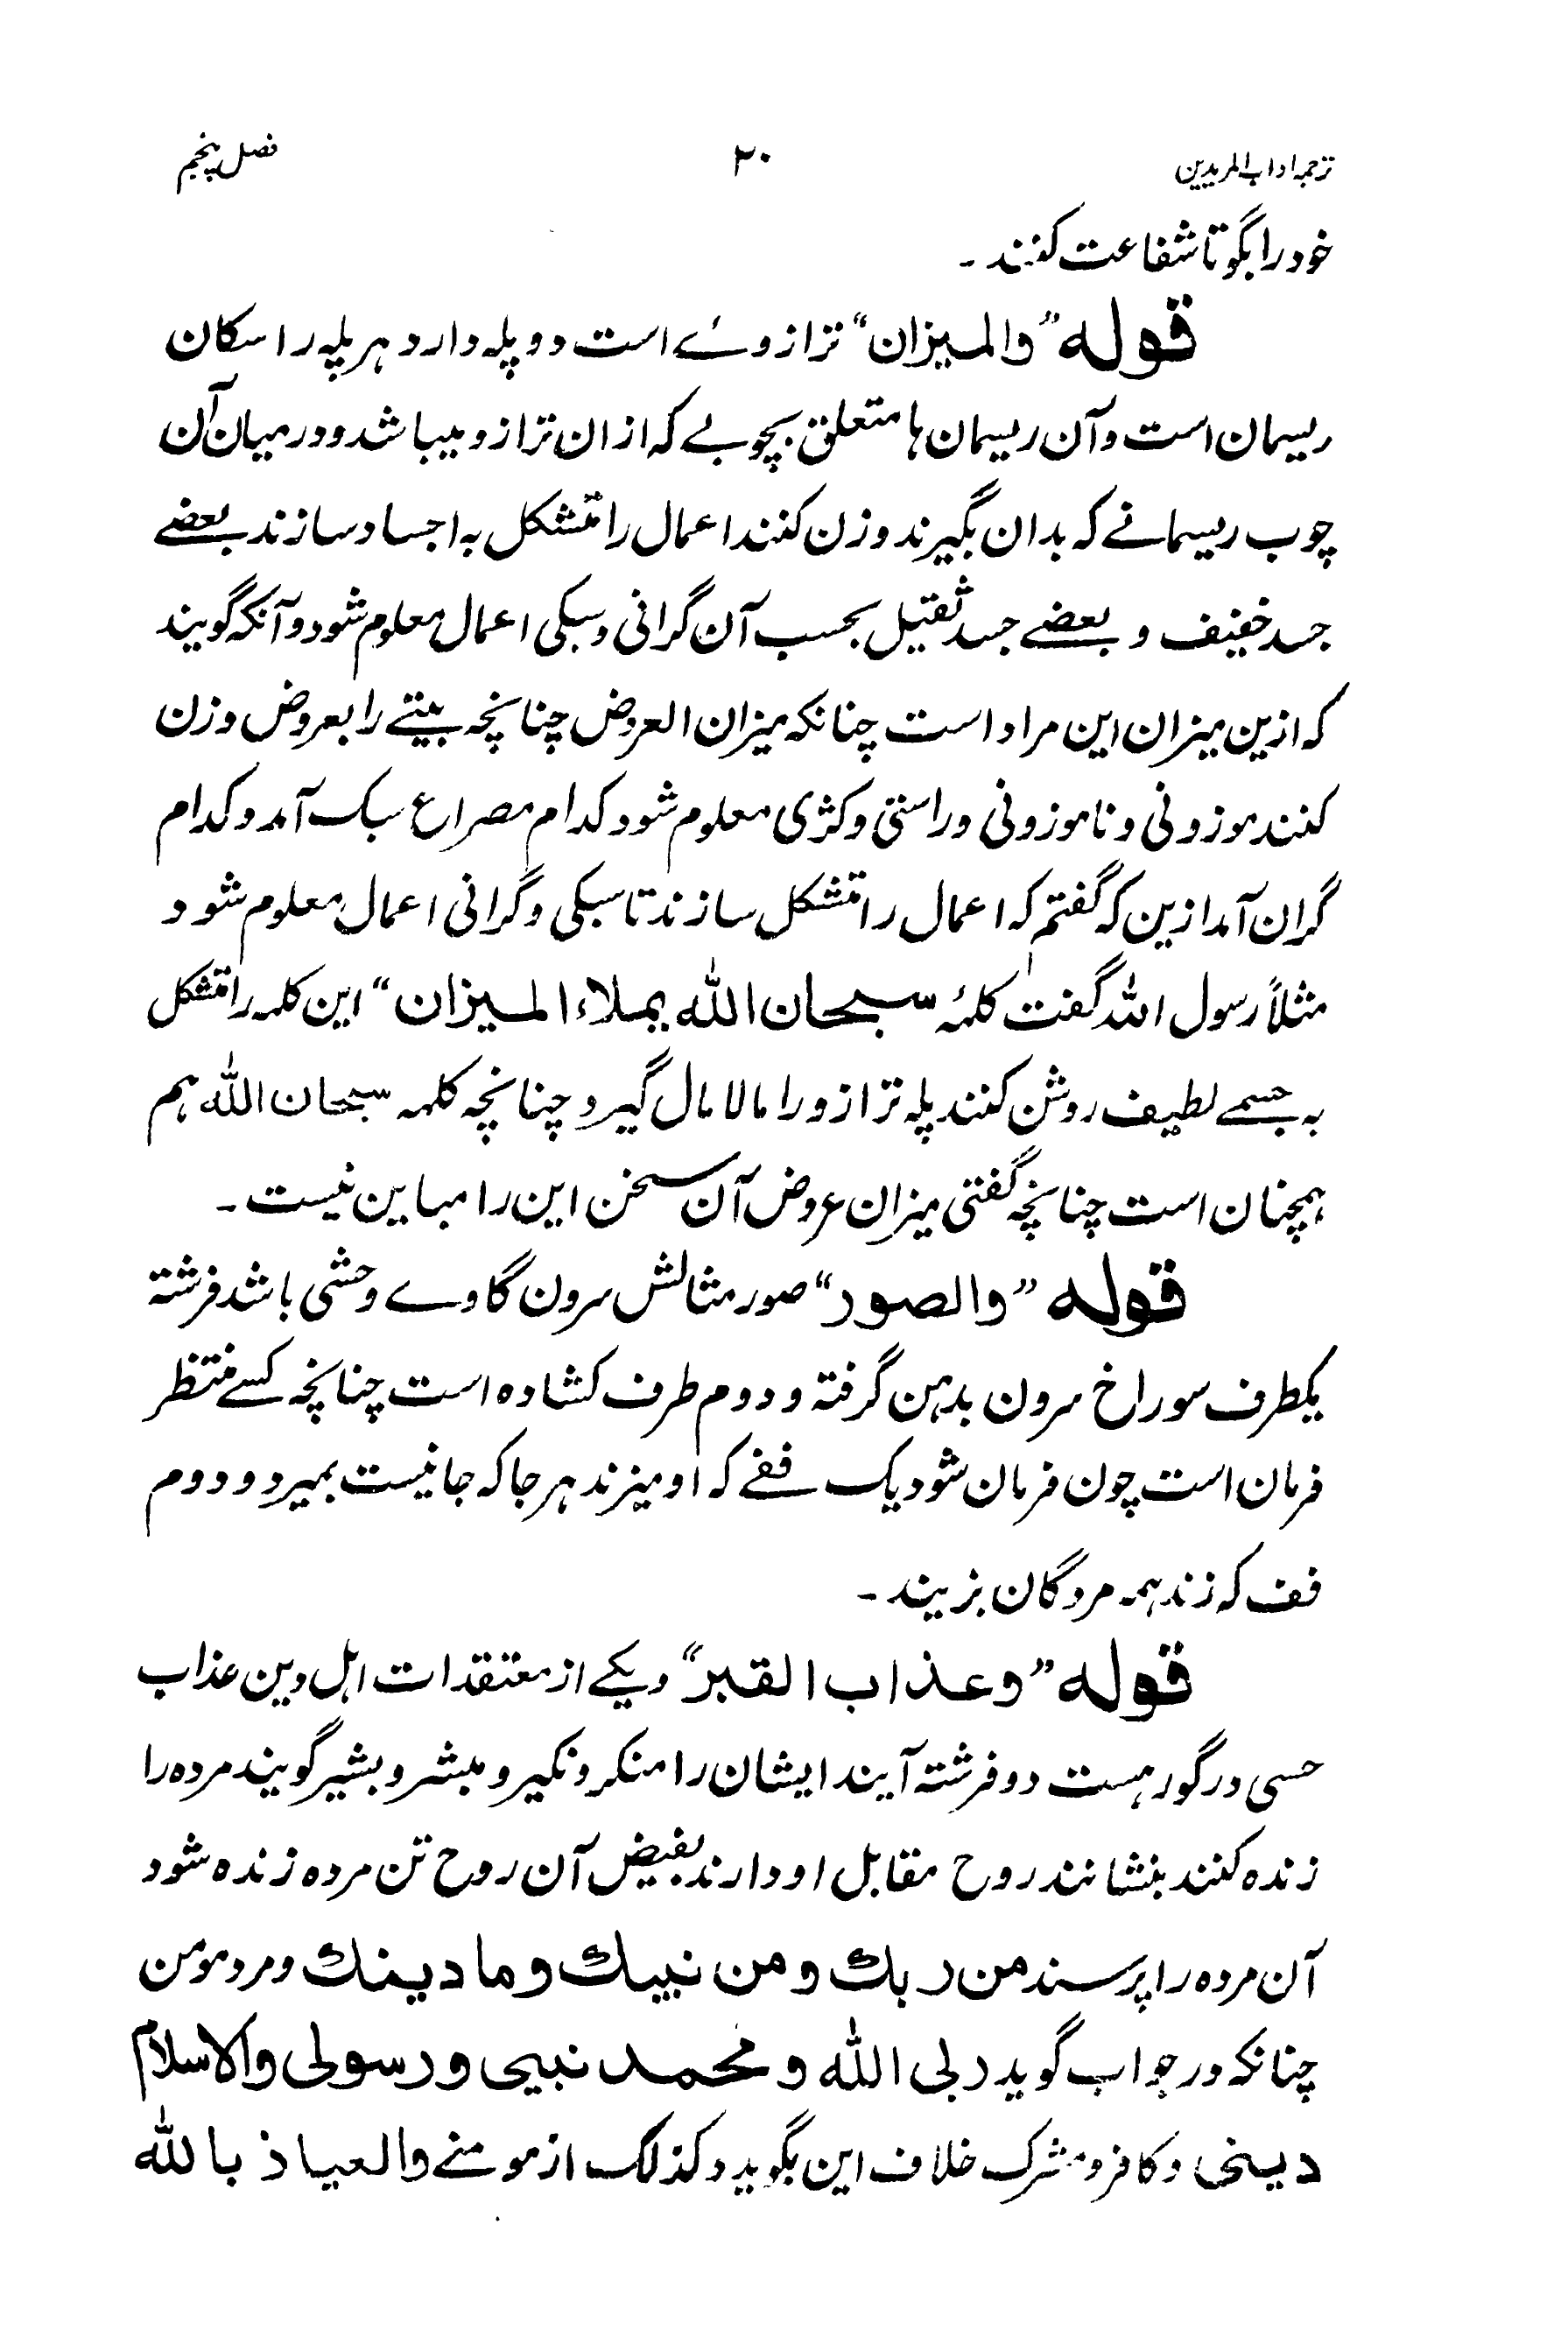 ترجمہ اداب المریدین ۳۰ فصل پنجم
خود را بگو تا شفاعت کنند۔
قوله ”والمیزان“ ترازوئے است دو پلہ دارد ہر پلہ را سکان
ریسمان است وآن ریسمان ہا متعلق بچوبے کہ ازان ترازو میباشد و درمیان آن
چوب ریسمانے کہ بدان بگیرند وزن کنند اعمال را متشکل بہ اجساد سازند بعضے
جسد خفیف و بعضے جسد ثقیل بحسب آن گرانی و سبکی اعمال معلوم شود و آنکہ گویند
کہ ازین میزان این مراد است چنانکہ میزان العروض چنانچہ بیتے را بعروض وزن
کنند موزونی و ناموزونی و راستی و کژی معلوم شود کدام مصراع سبک آمد و کدام
گران آمد ازین کہ گفتم کہ اعمال را متشکل سازند تا سبکی و گرانی اعمال معلوم شود
مثلاً رسول اللہ گفت کلمۂ سبحان الله یملاء المیزان“ این کلمہ را متشکل
بہ جسمے لطیف روشن کنند پلہ ترازو را مالا مال گیرد چنانچہ کلمہ سبحان اللہ ہم
ہمچنان است چنانچہ گفتی میزان عروض آن سخن این را مباین نیست۔
قوله ”والصور“ صور مثالش سرون گاوے وحشی باشد فرشتہ
یکطرف سوراخ سرون بدہن گرفتہ و دوم طرف کشادہ است چنانچہ کسے منتظر
فرمان است چون فرمان شود یک ففے کہ او میزند ہر جا کہ جانیست بمیرد و دوم
فف کہ زند ہمہ مردگان بزیند۔
قوله ”وعذاب القبر“ ویکے از معتقدات اہل دین عذاب
حسی در گور ہست دو فرشتہ آیند ایشان را منکر و نکیر و مبشر و بشیر گویند مردہ را
زندہ کنند بنشانند روح مقابل او دارند بفیض آن روح تن مردہ زندہ شود
آن مردہ را پرسند من ربك ومن نبيك وما دينك ومرد مومن
چنانکہ در جواب گوید ربی الله و محمد نبیی و رسولی والاسلام
دینی و کافر و مشرک خلاف این بگوید و کذلک از مومنے والعیاذ بالله